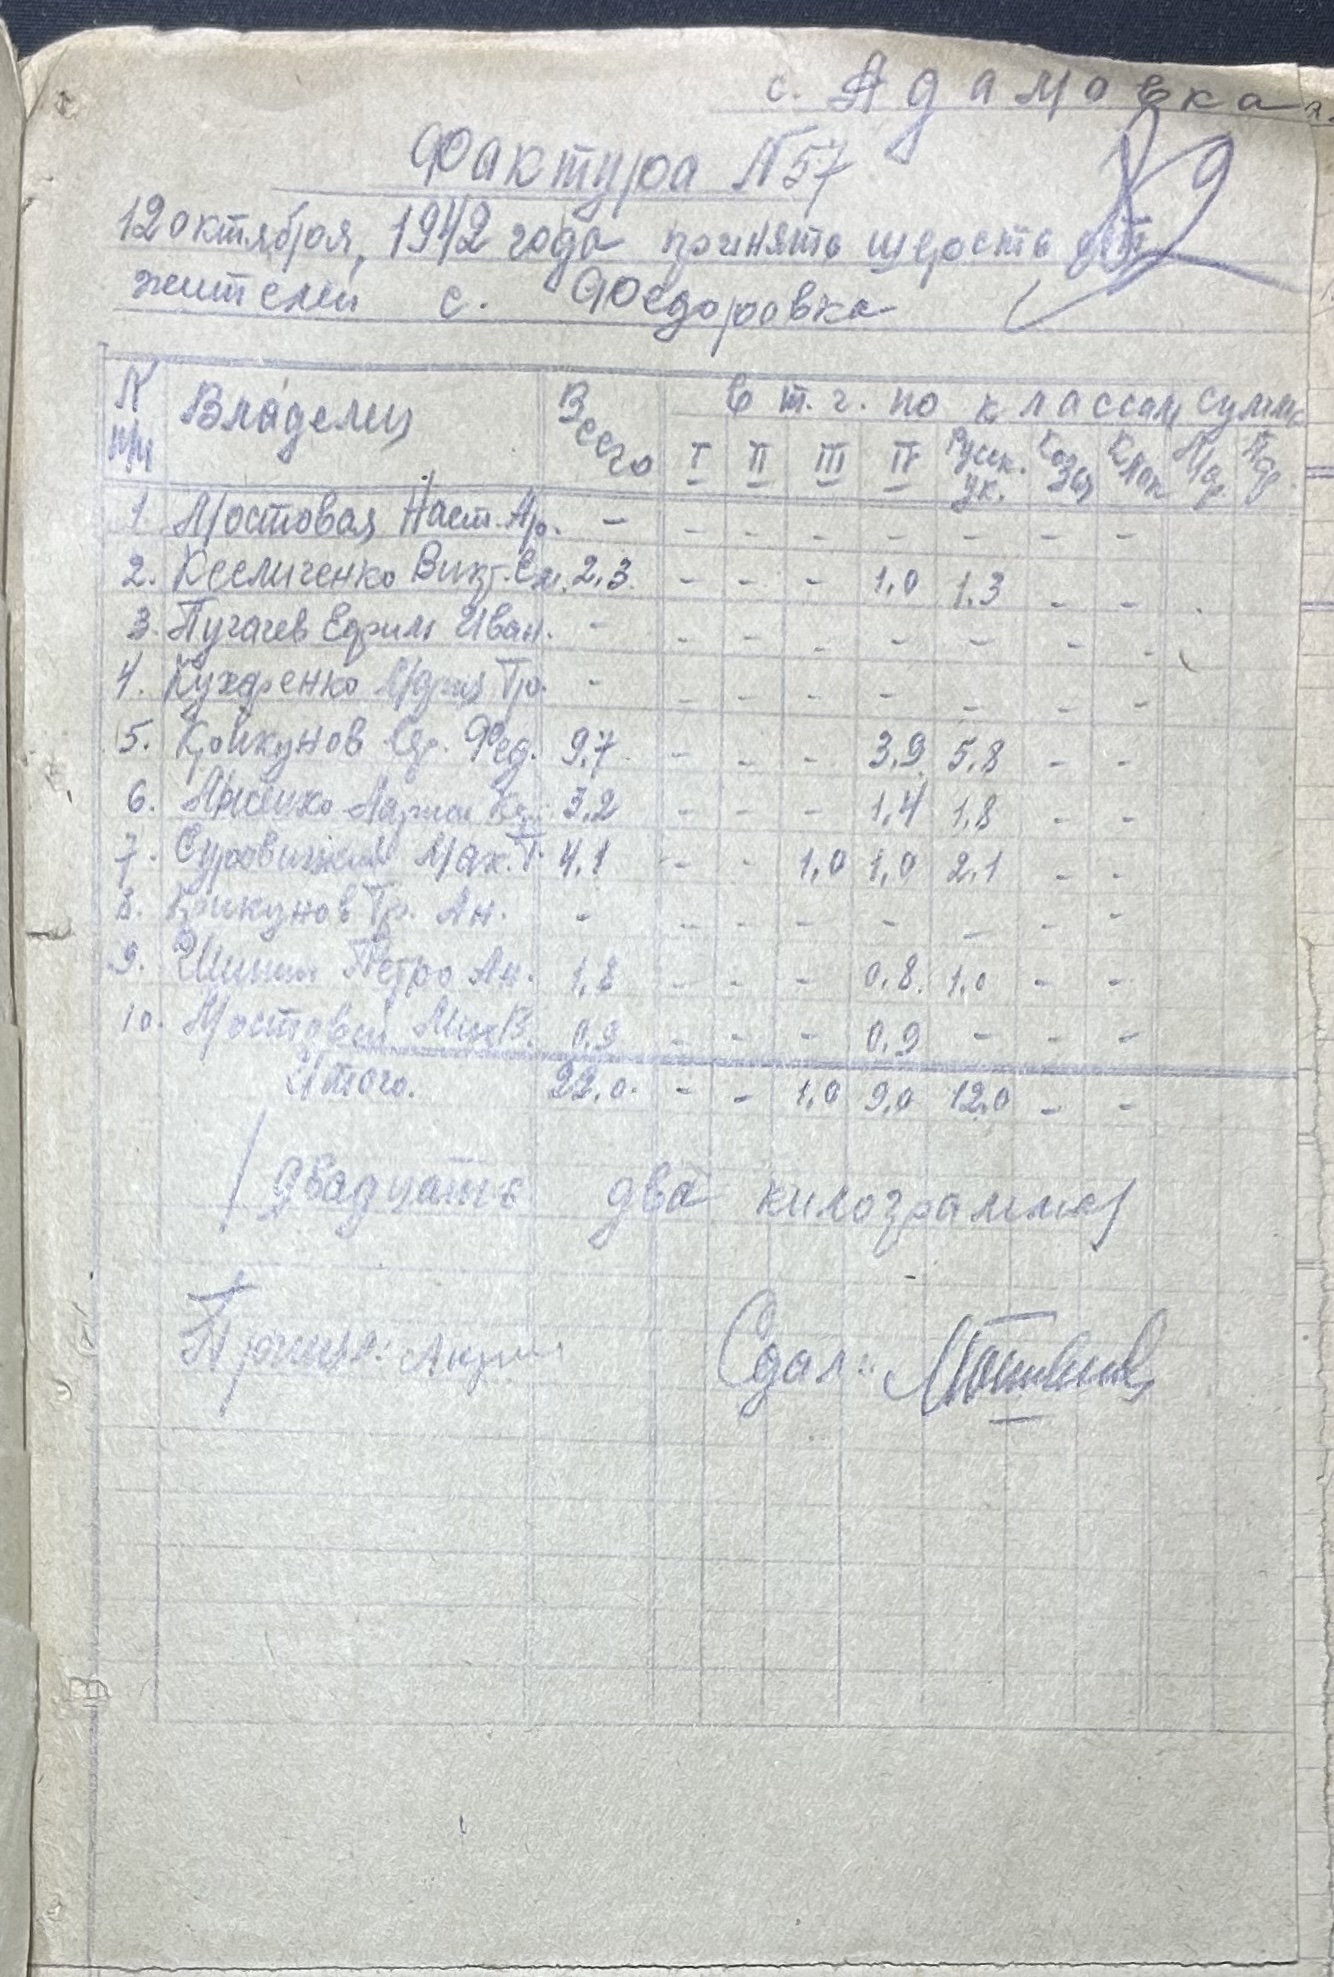 с. Адамовка
Фактура № 57
12 октября, 1942 года принята шерость от
жителей с. Федоровка
N п/п Владелец Всего в т. ч. по классам сумма
I II III IV Русск. ук. Коза Клок
1. Мостовая Наст. Ар. - - - - - - - -
2. Кесличенко Викт. Ем. 2,3 - - - 1,0 1,3 - -
3. Пугачев Ефрим Иван. - - - - - - - -
4. Кухаренко Мария Гр. - - - - - - - -
5. Крикунов Фед. 9,7 - - - 3,9 5,8 - -
6. 3,2 - - - 1,4 1,8 - -
7. 4,1 - - 1,0 1,0 2,1 - -
8. Крикунов Гр. Ан. - - - - - - - -
9. Петро Ан. 1,8 - - - 0,8 1,0 - -
10. Мостовой Мих. 0,9 - - - 0,9 - - -
Итого. 22,0 - - 1,0 9,0 12,0 - -
/Двадцать два килограмма/
Принял: Сдал: